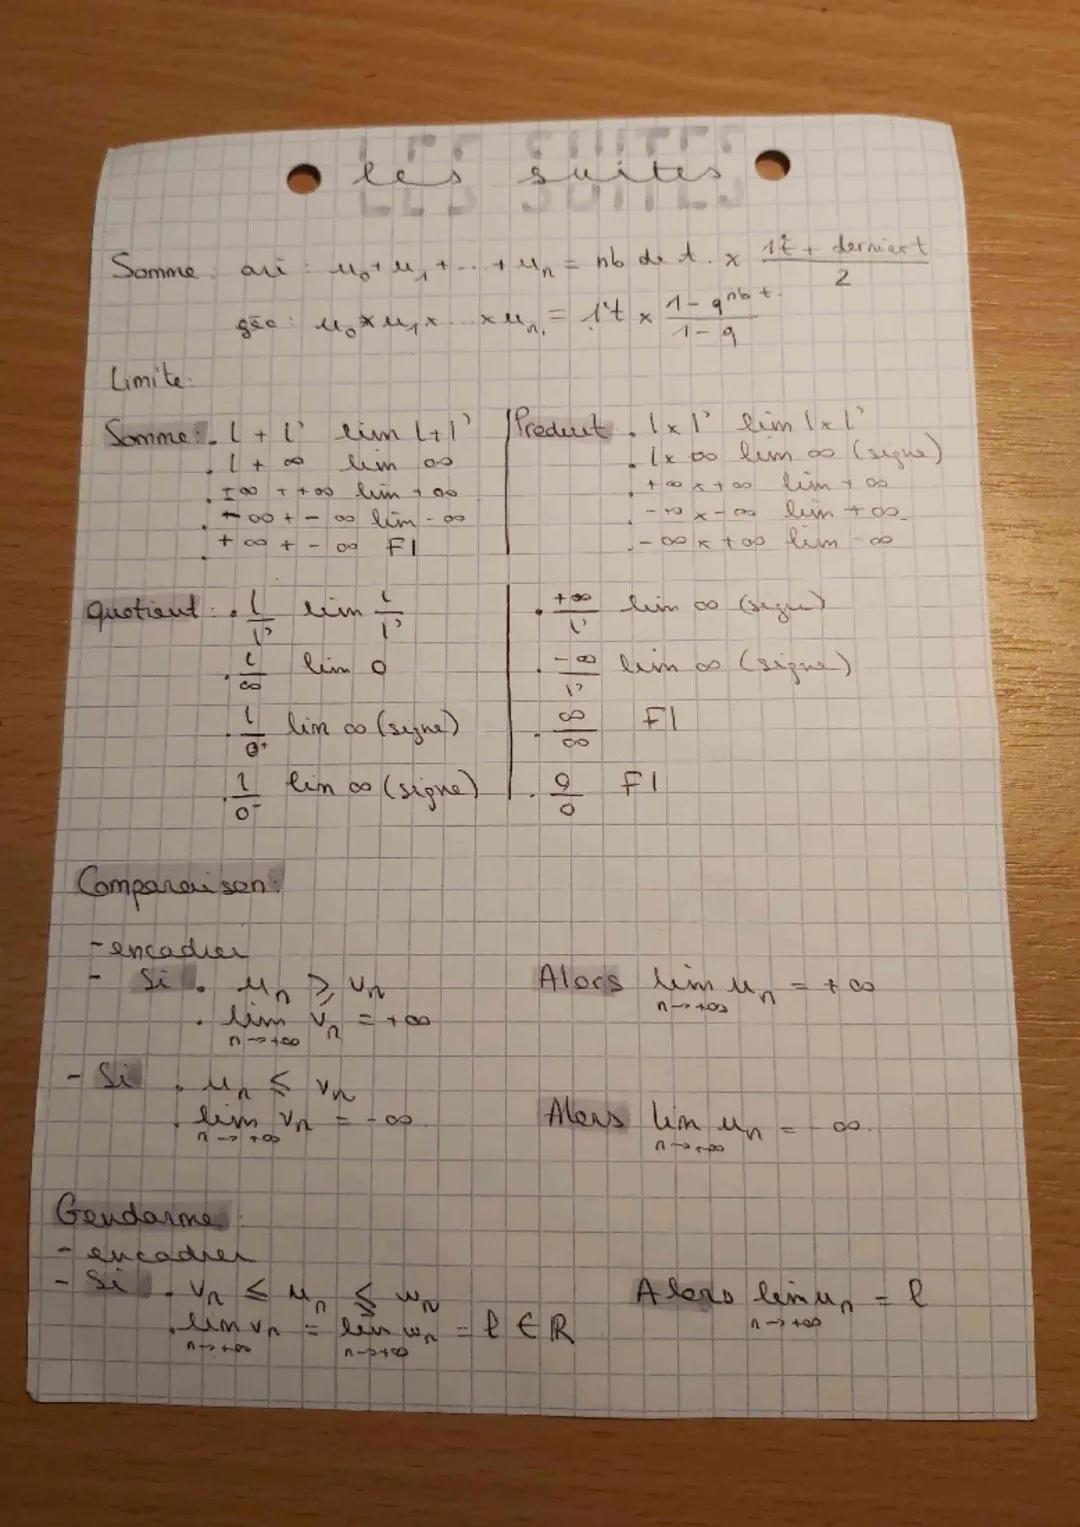 les suites
Somme : ari : u₀ + u₁ + ... + uₙ = nb de t. × (1ᵉt + derniert) / 2
géo : u₀ × u₁ × ... × uₙ = 1ᵉt × (1 - q^(nb t.)) / (1 - q)
Limite :
Somme : . l + l' lim l + l'
. l + ∞ lim ∞
. +∞ + +∞ lim +∞
. -∞ + -∞ lim -∞
. +∞ + -∞ FI
Produit . l × l' lim l × l'
. l × ∞ lim ∞ (signe)
. +∞ × +∞ lim +∞
. -∞ × -∞ lim +∞
. -∞ × +∞ lim -∞
quotient : . l / l' lim l / l'
. l / ∞ lim 0
. l / 0⁺ lim ∞ (signe)
. l / 0⁻ lim ∞ (signe)
. +∞ / l' lim ∞ (signe)
. -∞ / l' lim ∞ (signe)
. ∞ / ∞ FI
. 0 / 0 FI
Comparaison :
- encadrer
- Si . uₙ ⩾ vₙ Alors lim uₙ = +∞ n→+∞
. lim vₙ = +∞ n→+∞
- Si . uₙ ⩽ vₙ
. lim vₙ = -∞ n→+∞ Alors lim uₙ = -∞ n→+∞
Gendarme :
- encadrer
- Si . vₙ ⩽ uₙ ⩽ wₙ Alors lim uₙ = ℓ n→+∞
. lim vₙ n→+∞ = lim wₙ n→+∞ = ℓ ∈ ℝ